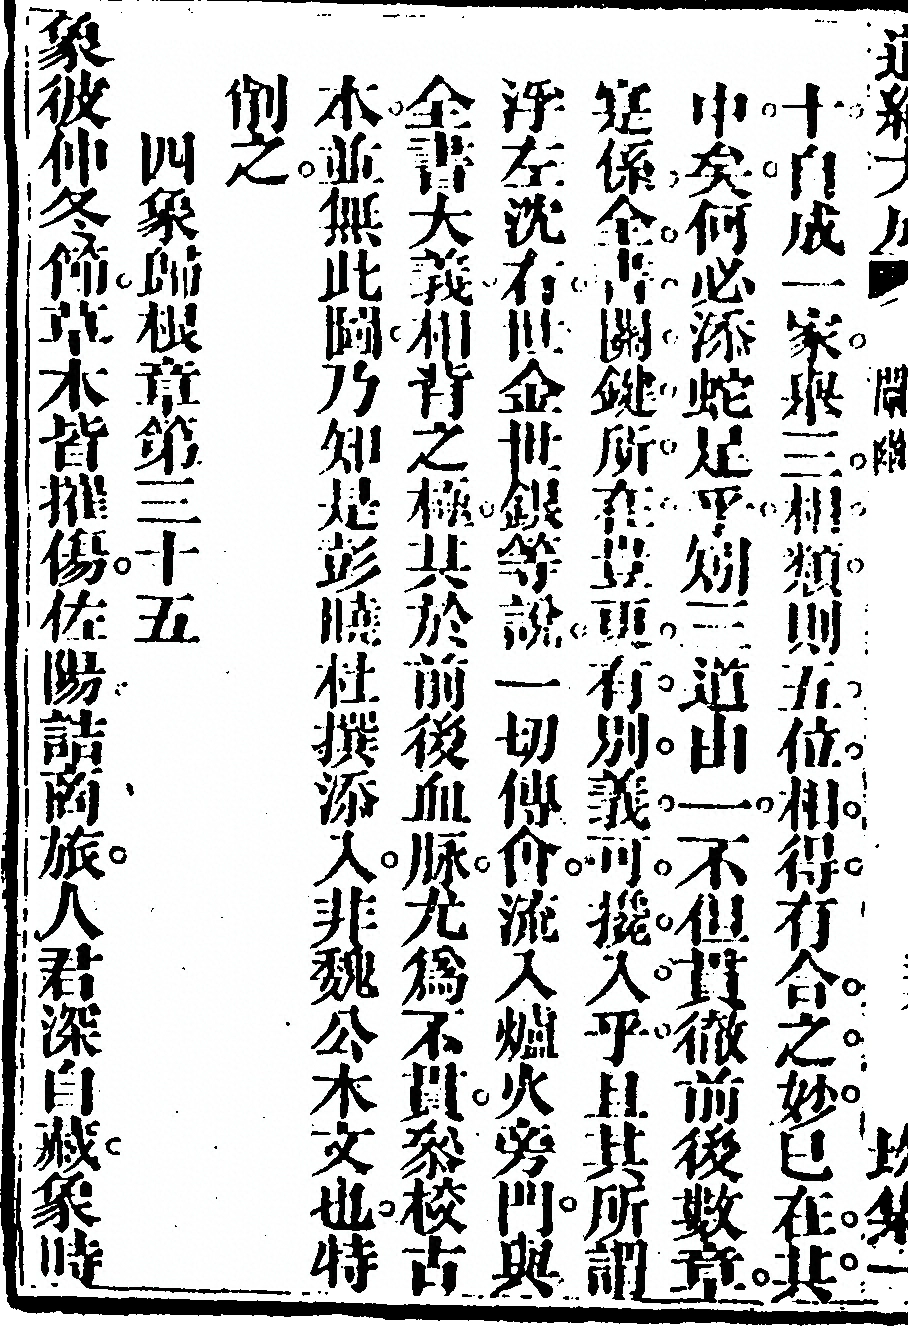 十自成一家與三相類則五位相得有合之妙已在其
中矣何必添蛇足乎矧三道由一不但貫徹前後數章
寔係全書關鍵所在豈更有別義可攙入乎且其所謂
浮左沈右世金世銀等說一切傳會流入爐火旁門與
全書大義相背之極其於前後血脉尤爲不貫叅校古
本並無此圖乃知是彭曉杜撰添入非魏公本文也特
刪之
四象歸根章第三十五
象彼仲冬節草木皆摧傷佐陽詰商旅人君深自藏象時